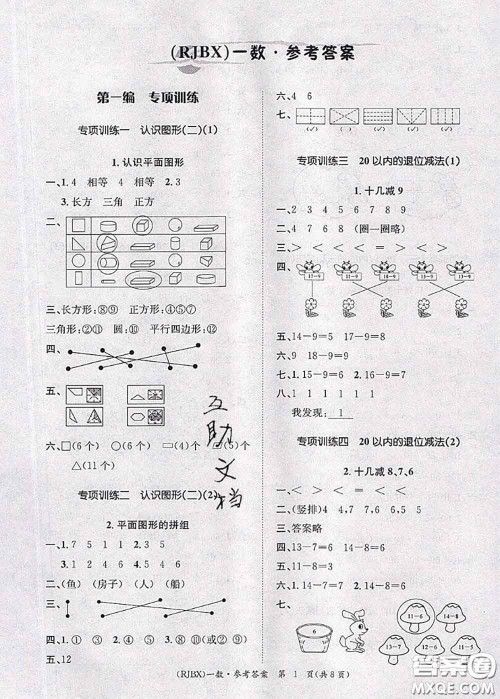 (RJBX)一数·参考答案
第一编 专项训练
专项训练一 认识图形(二)(1)
1.认识平面图形
一、1.4 相等 4 相等 2.3
3.长方 三角 正方
二、
三、长方形:⑧⑨ 正方形:④⑤⑦
三角形:②⑪ 圆:⑩ 平行四边形:⑫
四、
五、
六、□(6个) ○(6个) ○(4个)
△(11个)
专项训练二 认识图形(二)(2)
2.平面图形的拼组
一、1.7 5 1 2 3 4 5
二、(鱼) (房子) (人) (船)
三、
四、1.① ② ③ ④ 2.① ② ③
五、12
六、4 6
七、
(✓) (✓) (✓) (✓)
专项训练三 20以内的退位减法(1)
1.十几减9
一、2 3 4 5 6 7 8 9
二、4 7 6 8 (圈一圈略)
三、< = < < = <
四、
17-9 15-9 14-9 18-9
五、14-9=5 17-9=8
六、9 18-9=9
七、1.15-9=6 2.11-9=2
八、1 1 1 1
我发现:1
专项训练四 20以内的退位减法(2)
1.十几减8、7、6
一、5 4 9 7 7 6 7 8
二、(竖排)4 4,7 6,9 5,8 9
三、答案略
四、13-7=6 14-8=6
五、1.15-7=8 2.13-8=5
六、1.14-6=8 2.11-7=4
七、
6
11-6
13-8
互助文档
答案圈
MXQE.COM
(RJBX)一数·参考答案 第 1 页(共8页)